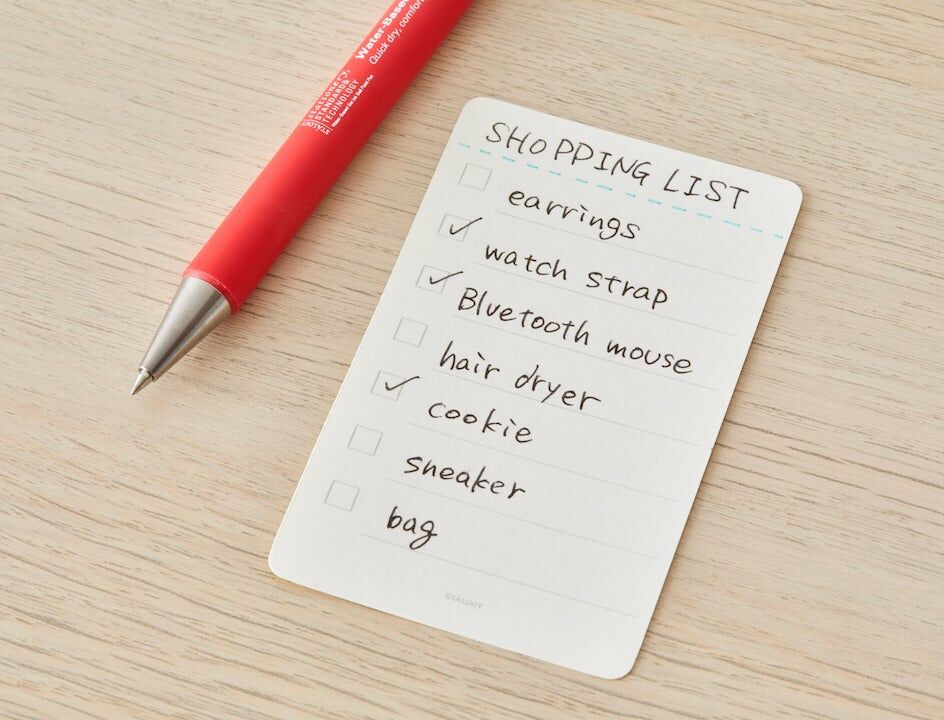 Water-Based
Quick dry, comfor
stationery,
STANDARD&
TECHNOLOGY
STÁLOGY
SHOPPING LIST
earrings
watch strap
Bluetooth mouse
hair dryer
cookie
sneaker
bag
STÁLOGY